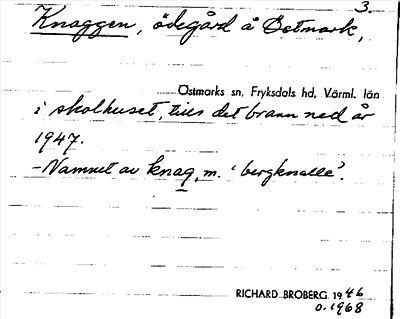 3.
Knaggen, ödegård å Östmark,
Östmarks sn, Fryksdals hd, Värml. län
i skolhuset, tills det brann ned år
1947.
-Namnet av knag, m. 'bergknalle'.
RICHARD BROBERG 1946
o. 1968